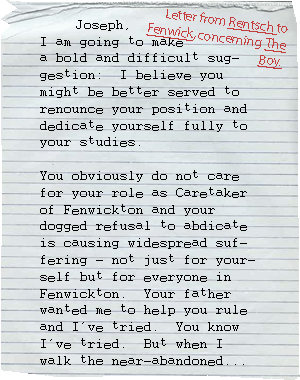 Letter from Rentsch to
Fenwick, concerning The
Boy.
Joseph,
I am going to make
a bold and difficult sug-
gestion:  I believe you
might be better served to
renounce your position and
dedicate yourself fully to
your studies.
You obviously do not care
for your role as Caretaker
of Fenwickton and your
dogged refusal to abdicate
is causing widespread suf-
fering - not just for your-
self but for everyone in
Fenwickton.  Your father
wanted me to help you rule
and I´ve tried.  You know
I´ve tried.  But when I
walk the near-abandoned...